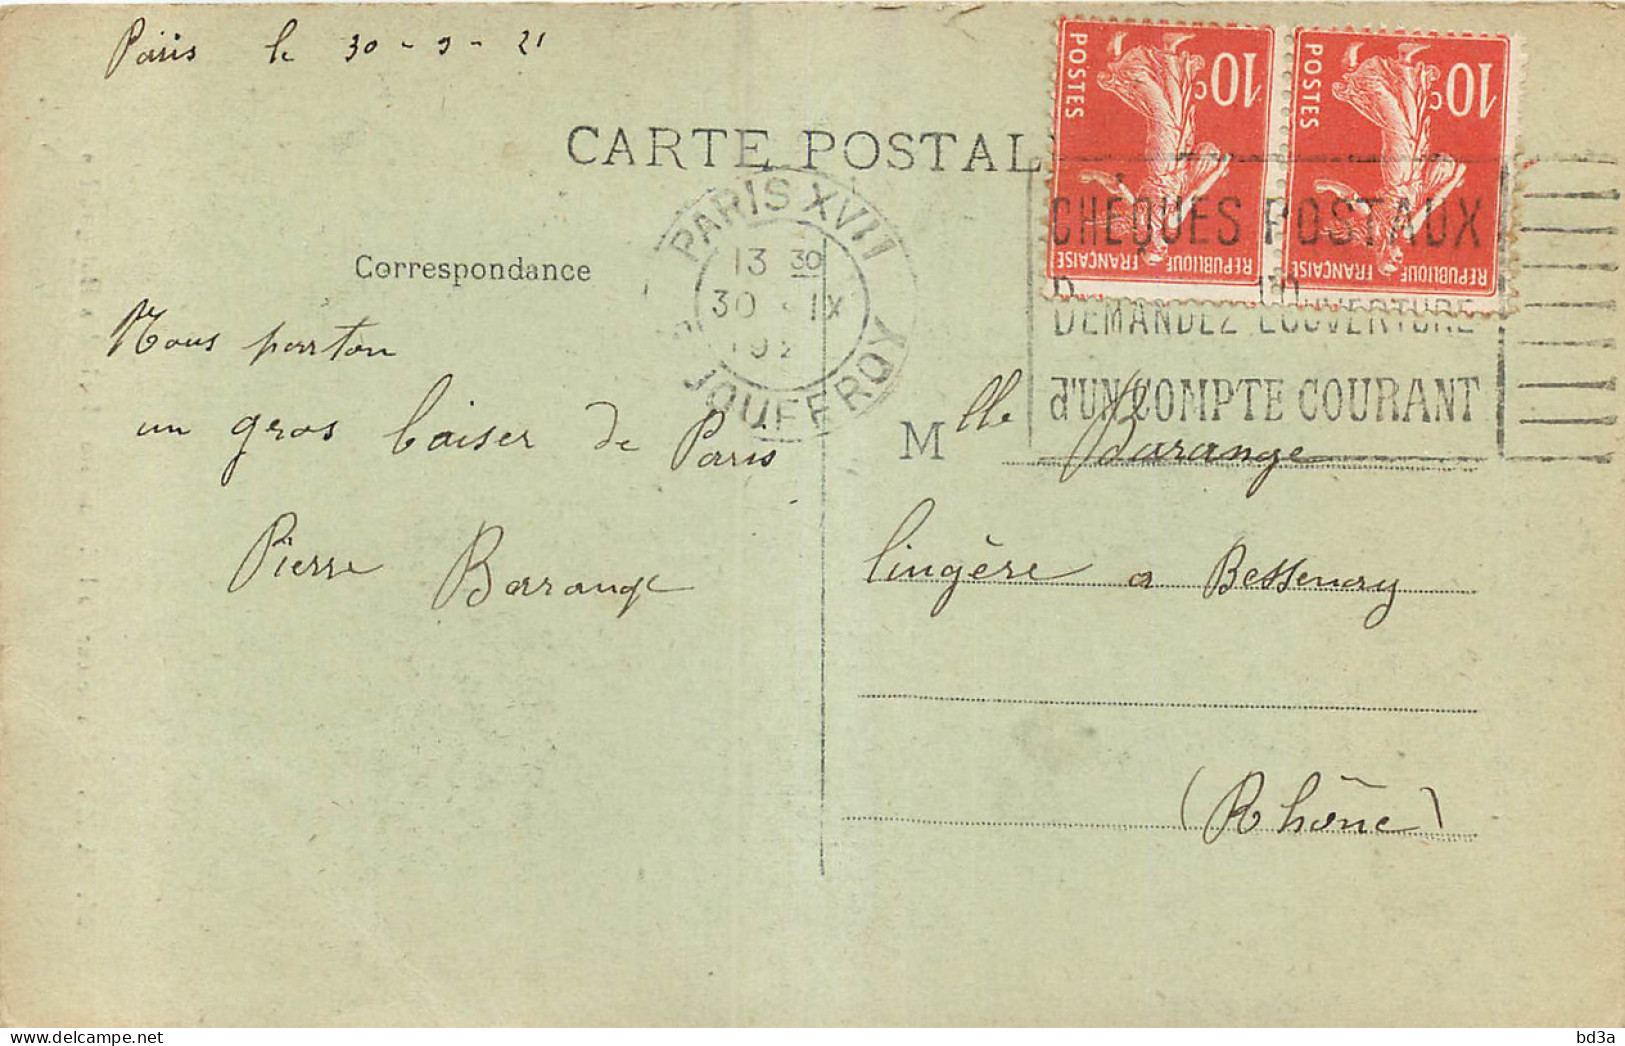 Paris le 30-9-21
CARTE POSTAL
10c
POSTES
REPUBLIQUE FRANÇAISE
10c
POSTES
REPUBLIQUE FRANÇAISE
PARIS XVII
13 30
30 - IX
192
JOUFFROY
CHÈQUES POSTAUX
DEMANDEZ L'OUVERTURE
d'UN COMPTE COURANT
Correspondance
Nous parton
un gros baiser de Paris
Pierre Barange
Mlle Barange
lingère a Bessenay
(Rhône)
delcampe.net
bd3a